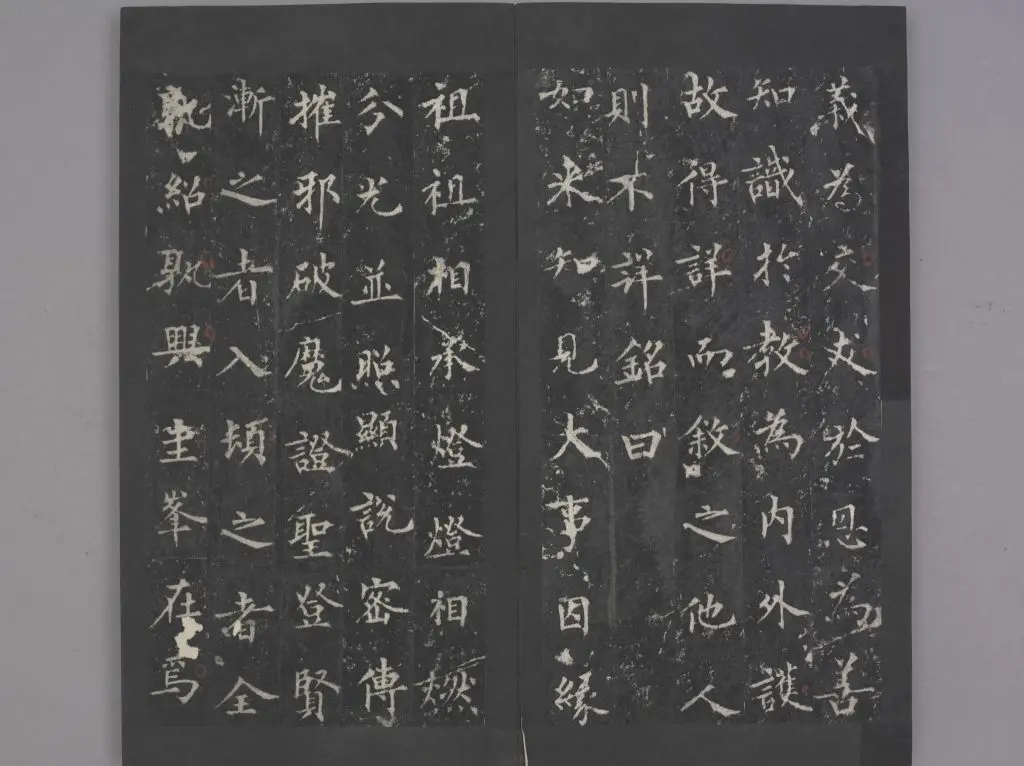 義為交友於恩為善
知識於教為內外護
故得詳而敘之他人
則不詳銘曰
如来知見大事因緣
祖祖相承燈燈相燃
分光並照顯說密傳
摧邪破魔證聖登賢
漸之者入頓之者全
孰紹孰興圭峯在焉